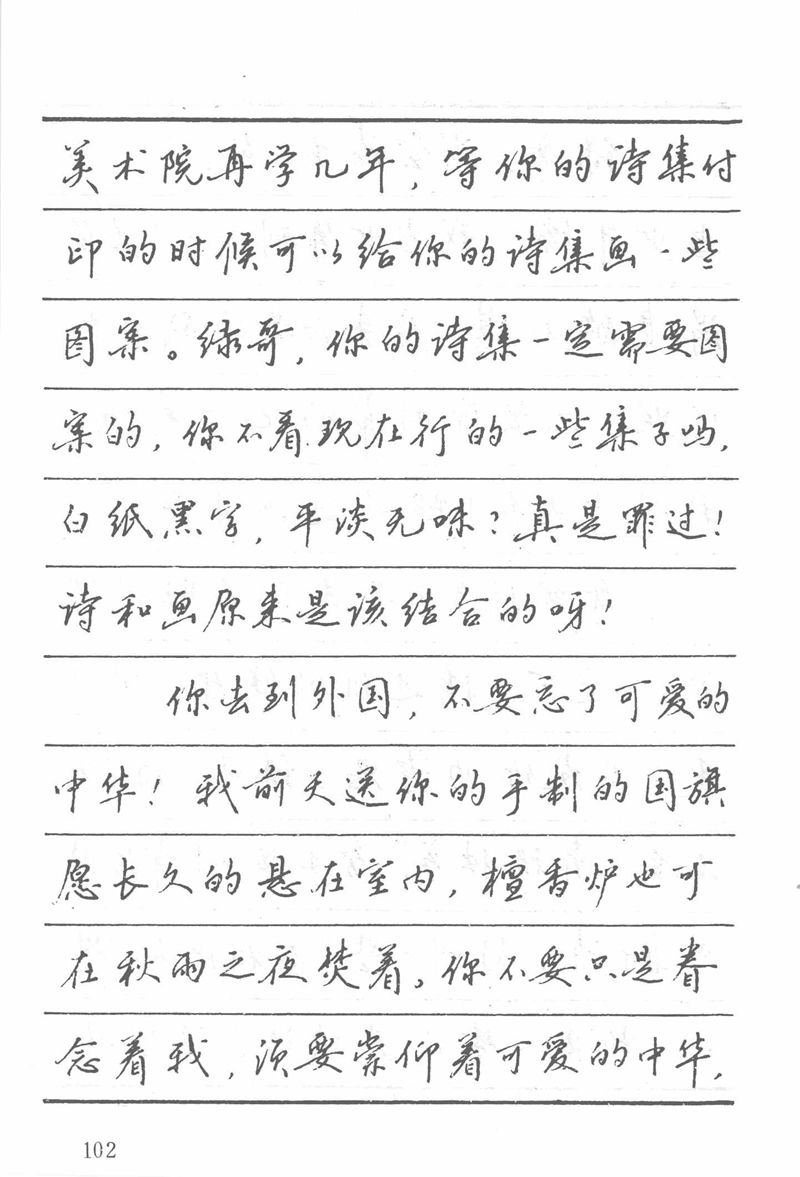 美术院再学几年，等你的诗集付
印的时候可以给你的诗集画一些
图案。绿哥，你的诗集一定需要图
案的，你不看现在行的一些集子吗，
白纸黑字，平淡无味？真是罪过！
诗和画原来是该结合的呀！
你去到外国，不要忘了可爱的
中华！我前天送你的手制的国旗
愿长久的悬在室内，檀香炉也可
在秋雨之夜焚着。你不要只是眷
念着我，须要崇仰着可爱的中华，
102